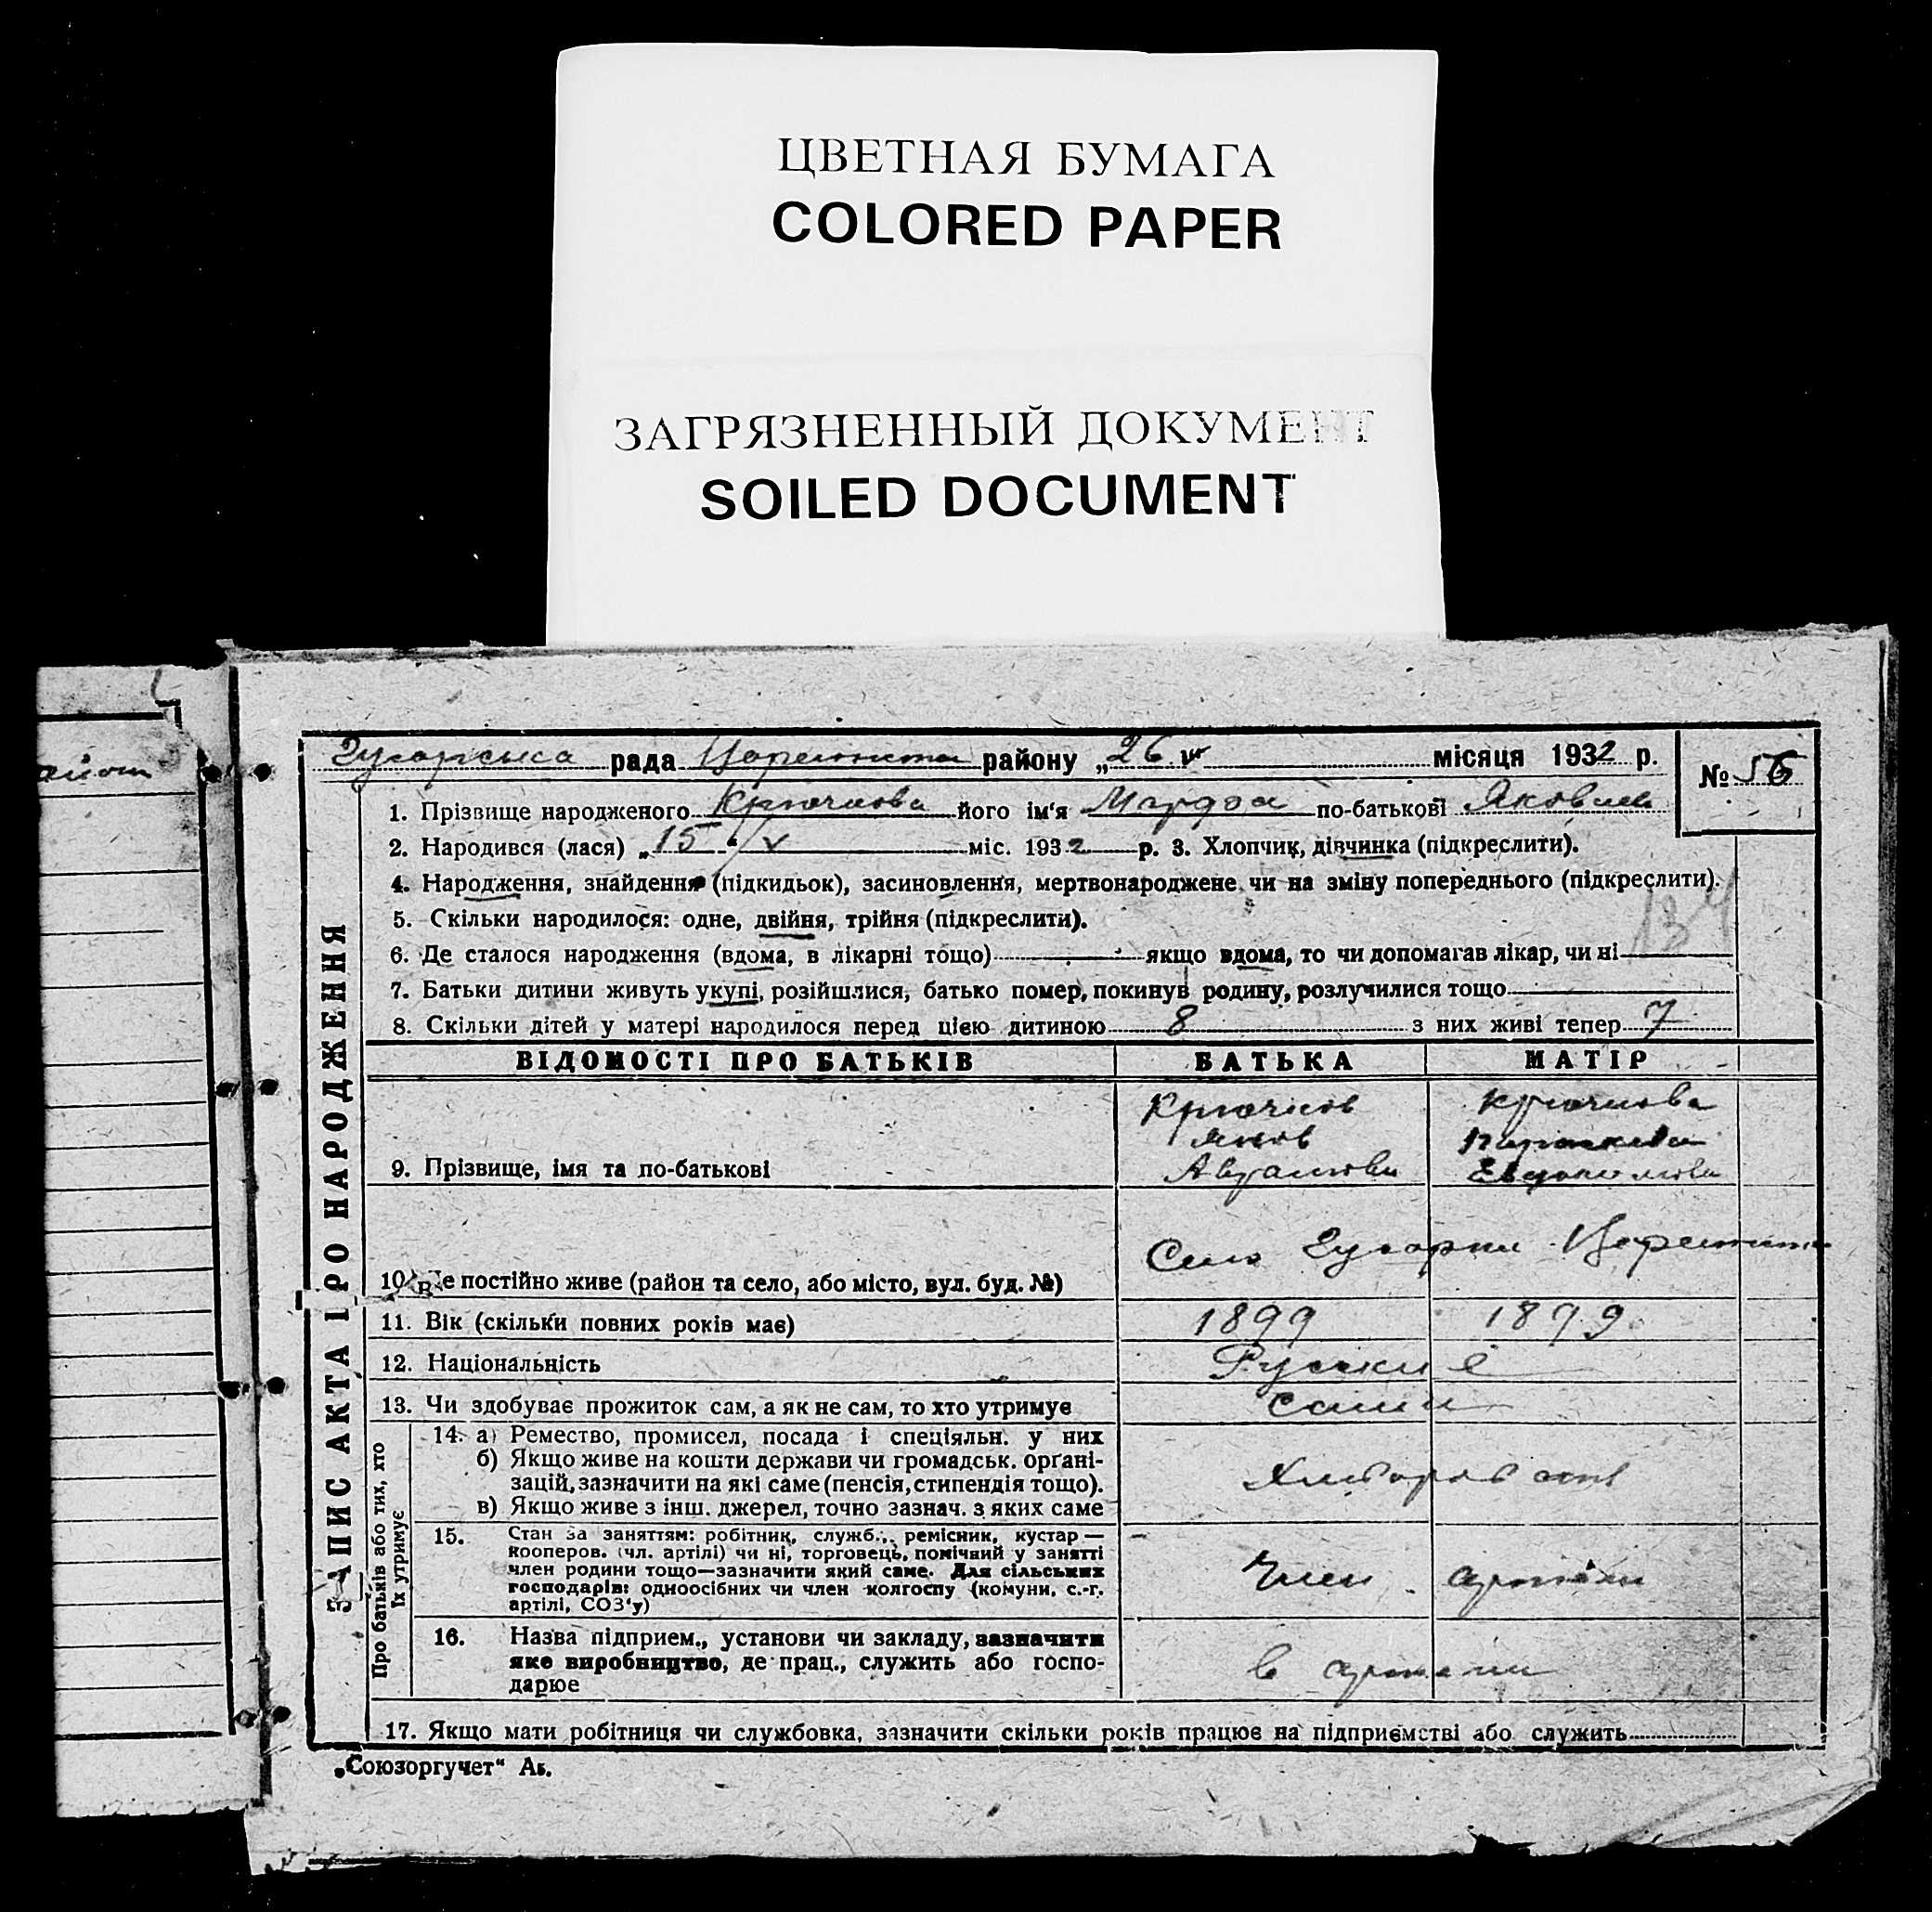 ЦВЕТНАЯ БУМАГА
COLORED PAPER
ЗАГРЯЗНЕННЫЙ ДОКУМЕНТ
SOILED DOCUMENT
рада района району „26 місяця 1932 р.
№ 56
1. Прізвище народженого Крючкова його ім'я Марфа по-батькові Яковлев
2. Народився (лася) „15 “/V міс. 1932 р. 3. Хлопчик, дівчинка (підкреслити).
4. Народження, знайдення (підкидьок), засиновлення, мертвонароджене чи на зміну попереднього (підкреслити).
5. Скільки народилося: одне, двійня, трійня (підкреслити).
134
6. Де сталося народження (вдома, в лікарні тощо) якщо вдома, то чи допомагав лікар, чи ні
7. Батьки дитини живуть укупі, розійшлися, батько помер, покинув родину, розлучилися тощо
8. Скільки дітей у матері народилося перед цією дитиною 8 з них живі тепер 7
ЗАПИС АКТА ПРО НАРОДЖЕННЯ
ВІДОМОСТІ ПРО БАТЬКІВ БАТЬКА МАТІР
Крючков Крючкова
Яков
9. Прізвище, імя та по-батькові
Село
10. Де постійно живе (район та село, або місто, вул. буд. №)
11. Вік (скільки повних років має) 1899 1899
12. Національність Руские
13. Чи здобуває прожиток сам, а як не сам, то хто утримує сами
Про батьків або тих, хто
їх утримує
14. а) Ремество, промисел, посада і спеціяльн. у них
б) Якщо живе на кошти держави чи громадськ. орґані-
зацій, зазначити на які саме (пенсія, стипендія тощо).
в) Якщо живе з інш. джерел, точно зазнач. з яких саме
15. Стан за заняттям: робітник, служб., ремісник, кустар —
кооперов. (чл. артілі) чи ні, торговець, помічний у занятті
член родини тощо—зазначити який саме. Для сільських
господарів: одноосібних чи член колгоспу (комуни, с.-г.
артілі, СОЗ'у)
Член артели
16. Назва підприєм., установи чи закладу, зазначити
яке виробництво, де прац., служить або госпо-
дарює
в артели
17. Якщо мати робітниця чи службовка, зазначити скільки років працює на підприємстві або служить
„Союзоргучет“